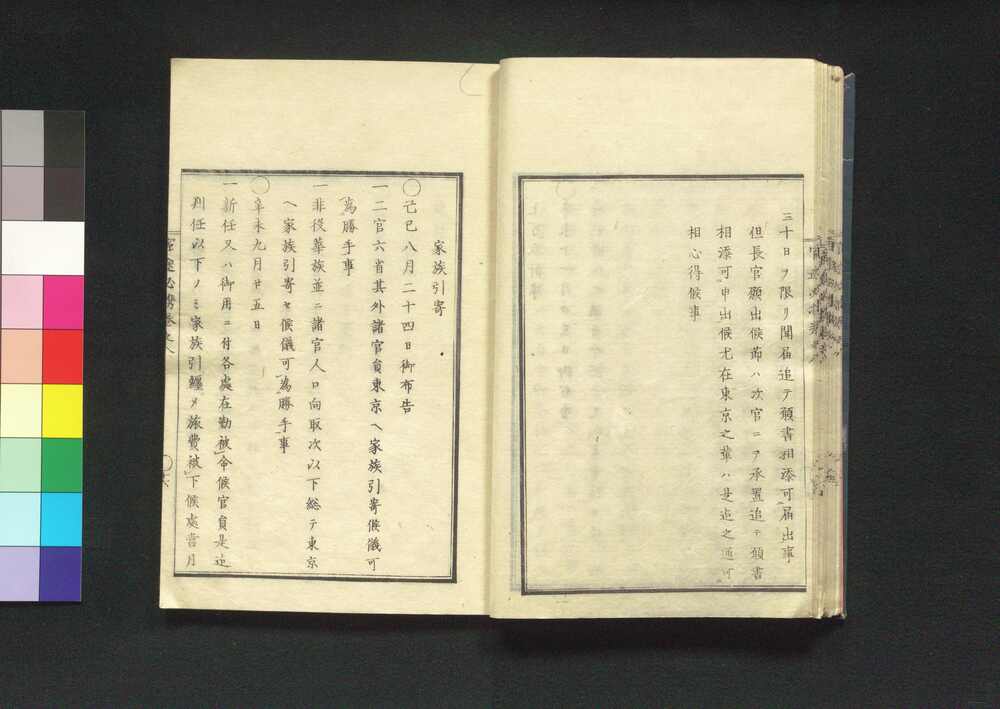 三十日ヲ限リ聞届追テ願書相添可届出事
但長官願出候節ハ次官ニテ承置追テ願書
相添可申出候尤在東京之輩ハ是迄之通可
相心得候事
家族引寄
〇己巳八月二十四日御布告
一二官六省其外諸官員東京ヘ家族引寄候儀可
為勝手事
一非役華族並ニ諸官人口向取次以下総テ東京
ヘ家族引寄セ候儀可為勝手事
〇辛未九月廿五日
一新任又ハ御用ニ付各處在勤被命候官員是迄
判任以下ノミ家族引纒メ旅費被下候處當月